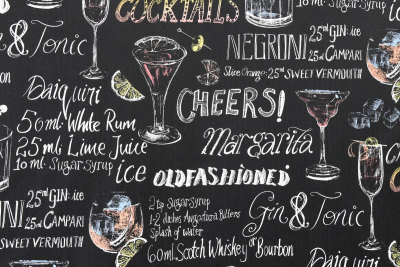 COCKTAILS
10 ml SugarSyrup
ice
& Tonic
NEGRONI
25ml GIN: ice
25ml CAMPARI
Slice Orange: 25ml SWEET VERMOUTH
Daiquiri
50ml White Rum
25ml Lime Juice
10 ml Sugar Syrup ice
CHEERS!
Margarita
OLDFASHIONED
2 tsp Sugar Syrup
1-2 dashes Angostura Bitters
Splash of water
60ml Scotch Whiskey or Bourbon
NI
25ml GIN: ice
25ml CAMPARI
SWEET VERMOUTH
Gin & Tonic
Daiquiri